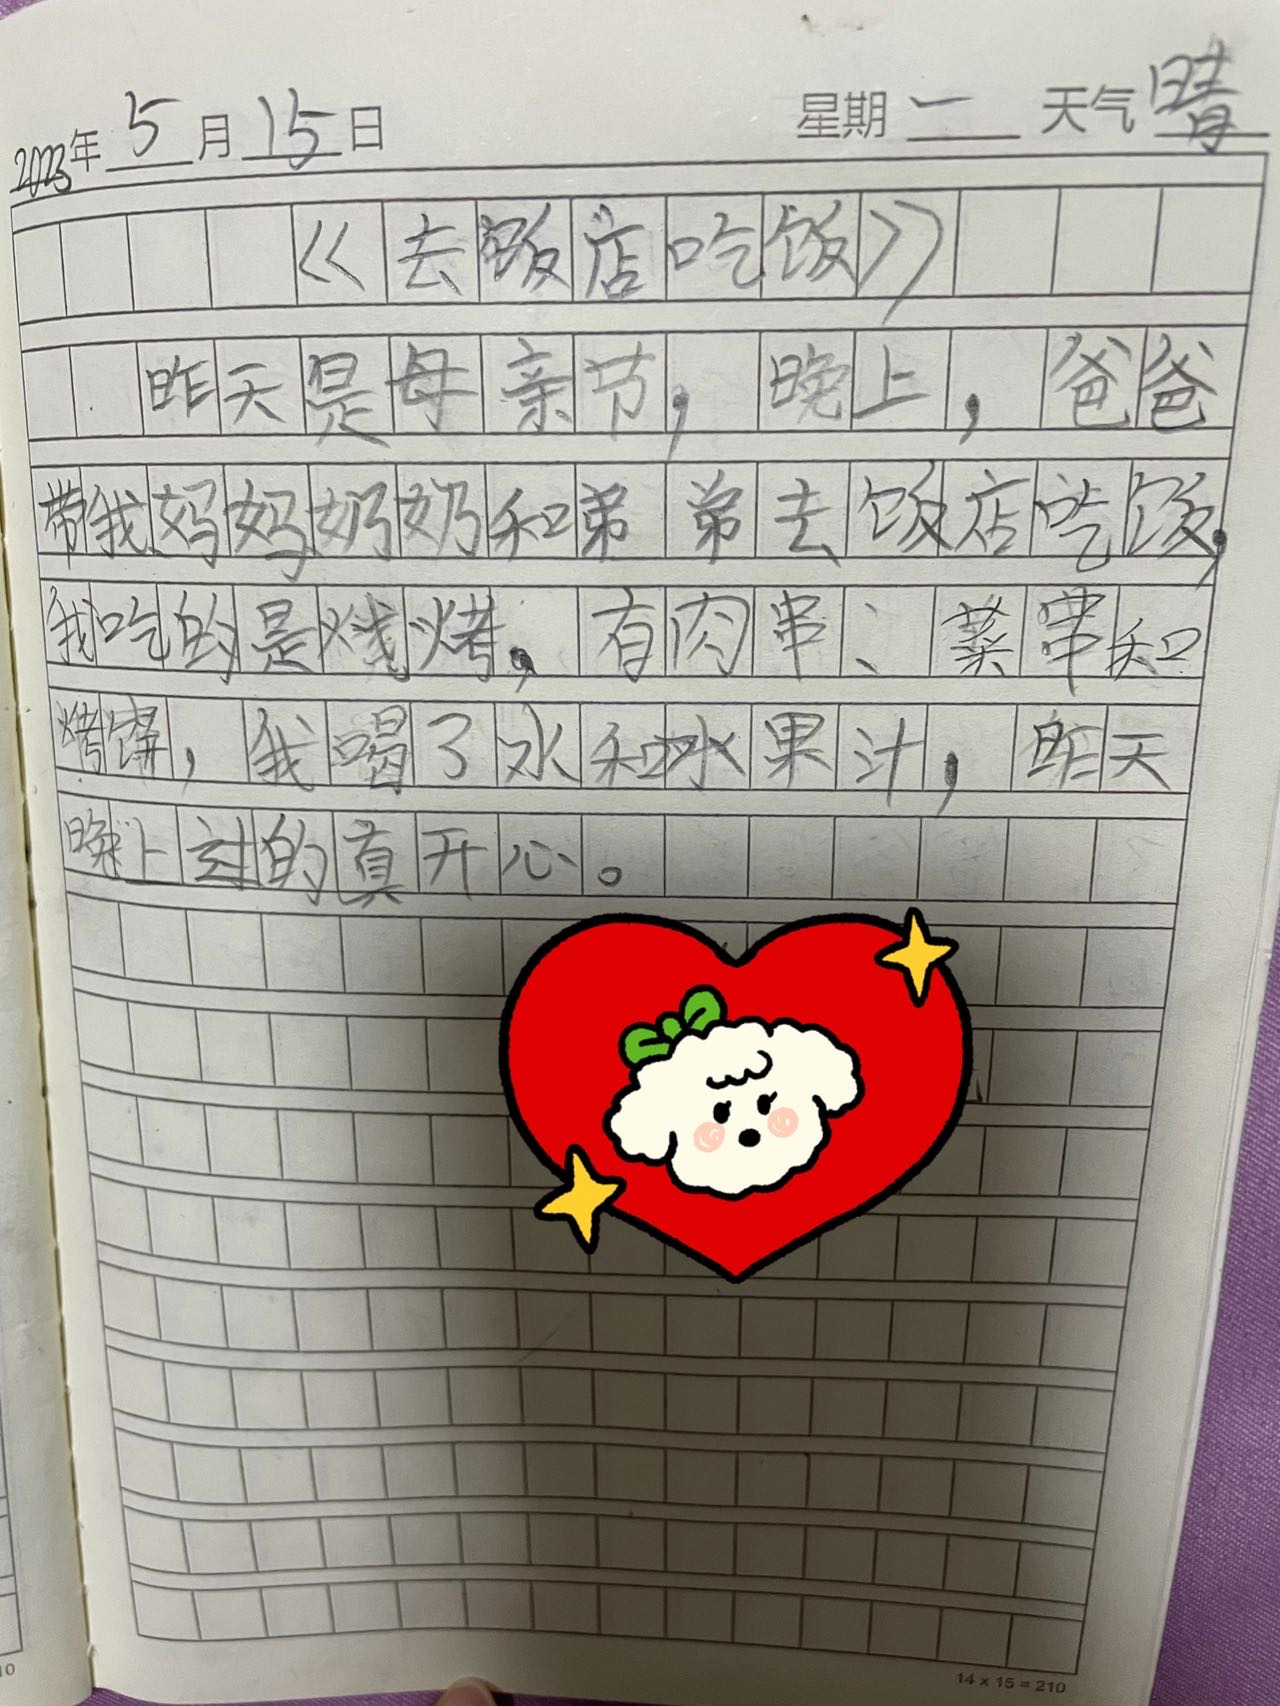 2023年 5 月 15 日 星期 一 天气 晴
《去饭店吃饭》
昨天是母亲节，晚上，爸爸
带我妈妈奶奶和弟弟去饭店吃饭，
我吃的是烧烤，有肉串、菜串和
烤饼，我喝了水和水果汁，昨天
晚上过的真开心。
14×15=210
10